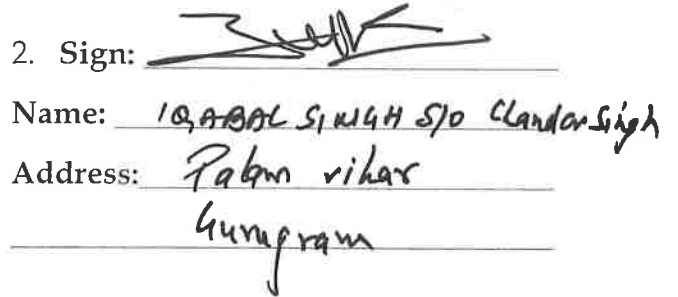 2. Sign:
Name: IQABAL SINGH S/O Chandar Singh
Address: Palam vihar
Gurugram